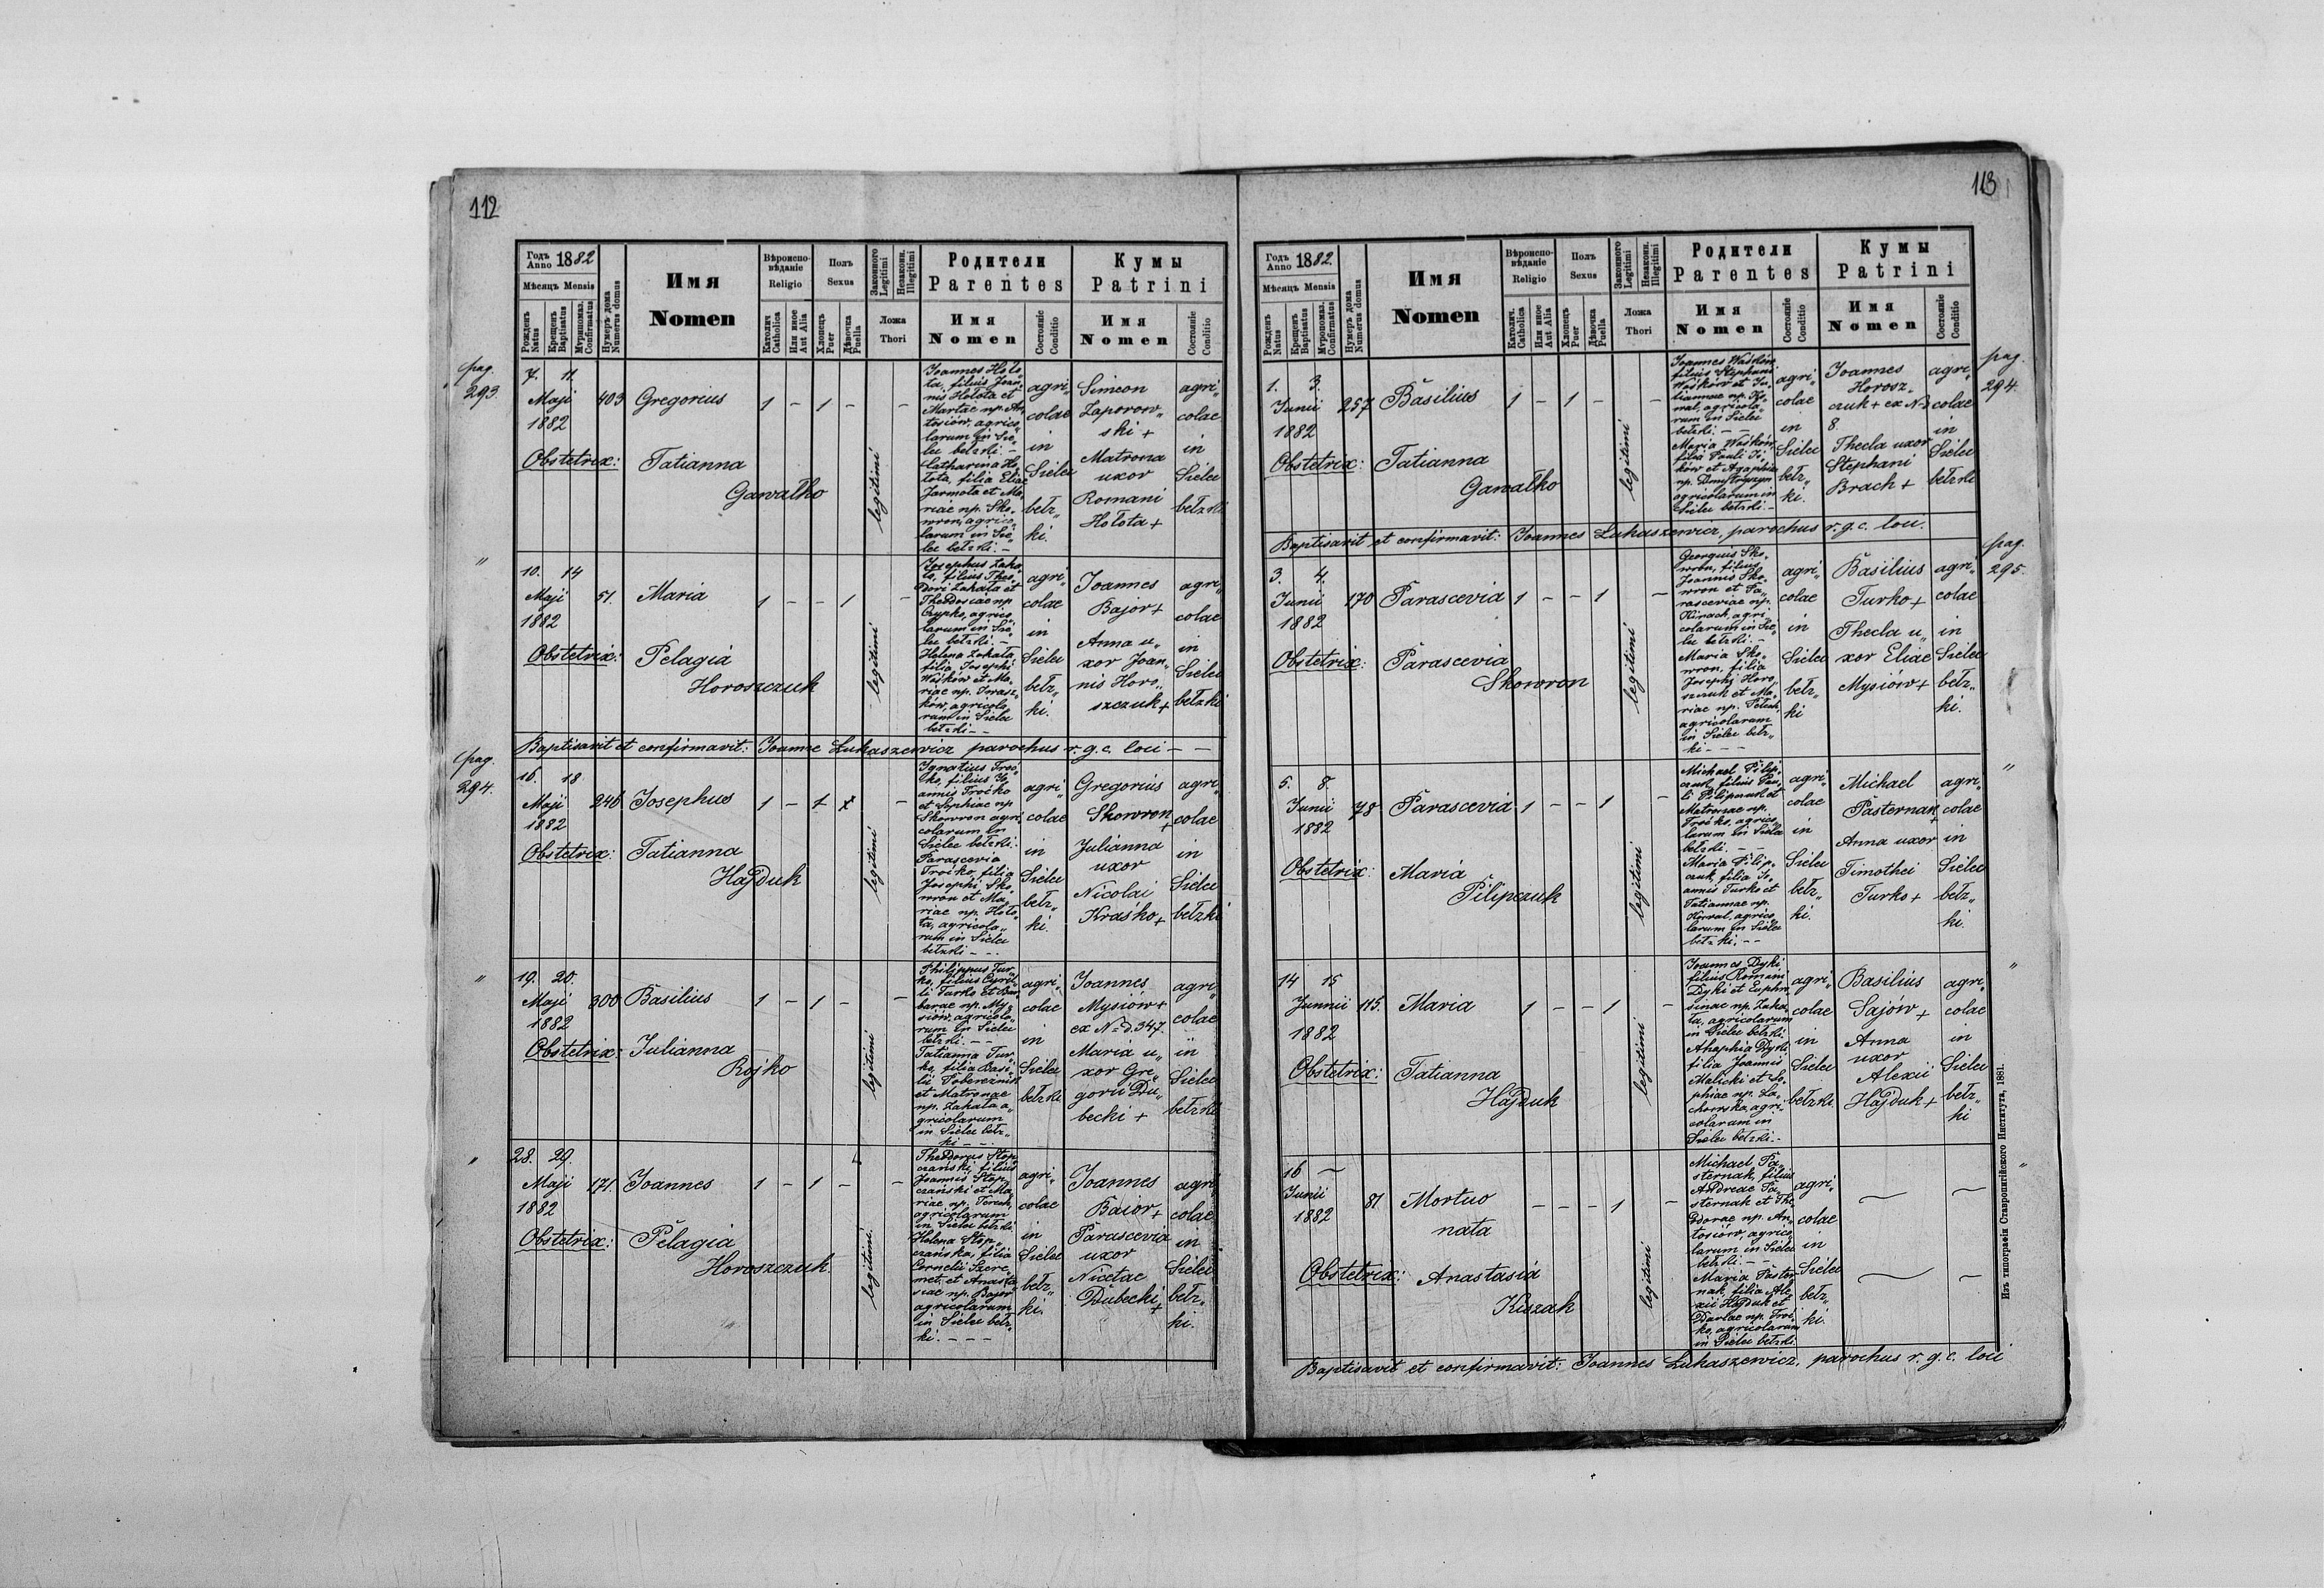 112
Годъ Anno 1882
Мѣсяцъ Mensis
Рожденъ Natus
Крещенъ Baptisatus
Мѵропомаз. Confirmatus
Нумеръ дома Numerus domus
Имя
Nomen
Вѣроисповѣданіе
Religio
Католич. Catholica
Или иное Aut Alia
Полъ
Sexus
Хлопецъ Puer
Дѣвочка Puella
Законного Legitimi
Незаконн. Illegitimi
Ложа
Thori
Родители
Parentes
Имя
Nomen
Состояніе Conditio
Кумы
Patrini
Имя
Nomen
Состояніе Conditio
pag.
293.
7. 11.
Maji
1882
403
Gregorius
1 - 1 - -
legitimi
Obstetrix: Tatianna
Gawałko
Joannes Holo„
ta, filius Joan„
nis Hołota et
Martae np. An„
tosiów, agrico„
larum in Sie„
lec bełzki. -
Catharina Ho„
łota, filia Eliae
Jarmoła et Ma„
riae np. Sko„
wron, agrico„
larum in Sie„
lec bełzki. -
agri„
colae
in
Sielec
bełz„
ki.
Simeon
Zaporow„
ski +
Matrona
uxor
Romani
Hołota +
agri„
colae
in
Sielec
bełzki
"
10. 14
Maji
1882
51.
Maria
1 - - 1 -
legitimi
Obstetrix: Pelagia
Horoszczuk
Josephus Zaha„
ta, filius Theo„
dori Zahata et
Theodosiae np
Crypko, agrico„
larum in Sie„
lec bełzki. -
Helena Zahata
filia Josephi
Waśków et Ma„
riae np. Iwasz„
ków, agricola„
rum in Sielec
bełzki - -
agri„
colae
in
Sielec
bełz„
ki.
Joannes
Bajor +
Anna u„
xor Joan„
nis Horo„
szczuk +
agri„
colae
in
Sielec
bełzki
Baptisavit et confirmavit: Joanne Łukaszewicz parochus r. g. c. loci - -
pag.
294.
16. 18
Maji
1882
246
Josephus
1 - 1 x -
legitimi
Obstetrix: Tatianna
Hajduk
Ignatius Troć„
ko, filius Jo„
annis Troćko
et Sophiae np
Skowron agri„
colarum in
Sielec bełzki.
Parascevia
Troćko, filia
Josephi Sko„
wron et Ma„
riae np. Hoło„
ta, agricola„
rum in Sielec
bełzki - -
agri„
colae
in
Sielec
bełz„
ki.
Gregorius
Skowron
+
Julianna
uxor
Nicolai
Kraśko +
agri„
colae
in
Sielec
bełzki
"
19. 20.
Maji
1882
300
Basilius
1 - 1 - -
legitimi
Obstetrix: Julianna
Rojko
Philippus Tur„
ko, filius Cyril„
li Turko et Bar„
barae np. My„
siów, agricola„
rum in Sielec
bełzki. - -
Tatianna Tur„
ko, filia Basi„
lii Tobereznik
et Matronae
np. Zahata a„
gricolarum
in Sielec bełz„
ki - -
agri„
colae
in
Sielec
bełzki
Joannes
Mysiów +
ex N=d. 347.
Maria u„
xor Gre„
gorii Du„
becki +
agri„
colae
in
Sielec
bełzki
"
28. 29.
Maji
1882
171.
Joannes
1 - 1 - -
legitimi
Obstetrix: Pelagia
Horoszczuk.
Theodorus Stop„
czański, filius
Joannis Stop„
czański et Ma„
riae np. Terech,
agricolarum
in Sielec bełzki
Helena Stop„
czańska, filia
Cornelii Szere„
met, et Anasta„
siae np. Bajor
agricolarum
in Sielec bełz„
ki. - - -
agri„
colae
in
Sielec
bełz„
ki.
Joannes
Baior +
Parascevia
uxor
Nicetae
Dubecki +
agri„
colae
in
Sielec
bełz„
ki.
113
Годъ Anno 1882.
Мѣсяцъ Mensis
Рожденъ Natus
Крещенъ Baptisatus
Мѵропомаз. Confirmatus
Нумеръ дома Numerus domus
Имя
Nomen
Вѣроисповѣданіе
Religio
Католич. Catholica
Или иное Aut Alia
Полъ
Sexus
Хлопецъ Puer
Дѣвочка Puella
Законного Legitimi
Незаконн. Illegitimi
Ложа
Thori
Родители
Parentes
Имя
Nomen
Состояніе Conditio
Кумы
Patrini
Имя
Nomen
Состояніе Conditio
pag.
294.
1. 3.
Junii
1882
257
Basilius
1 - 1 - -
legitimi
Obstetrix: Tatianna
Gawałko
Joannes Waśków
filius Stephani
Waśków et Ta„
tiannae np. Ko„
wal, agricola„
rum in Sielec
bełzki. - -
Maria Waśków,
filia Pauli
ków et Agaphiae
np. Dmytryszyn
agricolarum in
Sielec bełzki. -
agri„
colae
in
Sielec
bełz„
ki.
Joannes
Horosz„
czuk + ex N=
8.
Thecla uxor
Stephani
Brach +
agri„
colae
in
Sielec
bełzki
Baptisavit et confirmavit: Joannes Łukaszewicz, parochus r. g. c. loci.
pag.
295.
3. 4.
Junii
1882
170
Parascevia
1 - - 1 -
legitimi
Obstetrix: Parascevia
Skowron
Georgius Sko„
wron, filius
Joannis Sko„
wron et Pa„
rasceviae np.
Kinach, agri„
colarum in Sie„
lec bełzki. -
Maria Sko„
wron, filia
Josephi Horo„
szczuk et Ma„
riae np. Pelech,
agricolarum
in Sielec bełz„
ki - - -
agri„
colae
in
Sielec
bełz„
ki
Basilius
Turko +
Thecla u„
xor Eliae
Mysiów +
agri„
colae
in
Sielec
bełz„
ki.
"
5. 8.
Junii
1882
78
Parascevia
1 - - 1 -
legitimi
Obstetrix: Maria
Pilipczuk
Michael Pilip„
czuk, filius Pau„
li Pilipczuk et
Matronae np.
Troćko, agrico„
larum in Sielec
bełzki. - -
Maria Pilip„
czuk, filia Jo„
annis Turko et
Tatiannae np.
Kowal, agrico„
larum in Sielec
bełzki. - -
agri„
colae
in
Sielec
bełz„
ki.
Michael
Pasternak
+
Anna uxor
Timothei
Turko +
agri„
colae
in
Sielec
bełz„
ki.
"
14 15
Junnii
1882
115.
Maria
1 - - 1 -
legitimi
Obstetrix: Tatianna
Hajduk
Joannes Dyki
filius Romani
Dyki et Euphro„
sinae np. Zaha„
ta, agricolarum
in Sielec bełzki
Ahaphia Dyki
filia Joannis
Malicki et So„
phiae np. Za„
chowska, agri„
colarum in
Sielec bełzki. -
agri„
colae
in
Sielec
bełzki
Basilius
Sajów +
Anna
uxor
Alexii
Hajduk +
agri„
colae
in
Sielec
bełz„
ki
"
16 -
Junii
1882
81
Mortuo
nata
- - - 1 -
legitimi
Obstetrix: Anastasia
Kiszak
Michael Pa„
sternak, filius
Andreae Pa„
sternak et The„
odorae np. An„
tosiów, agrico„
larum in Sielec
bełzki. - -
Maria Paster„
nak, filia Ale„
xii Hajduk et
Dariae np. Troć„
ko, agricolarum
in Sielec bełzki.
agri„
colae
in
Sielec
bełz„
ki.
Baptisavit et confirmavit: Joannes Łukaszewicz, parochus r. g. c. loci
Изъ типографіи Ставропигійского Института, 1881.